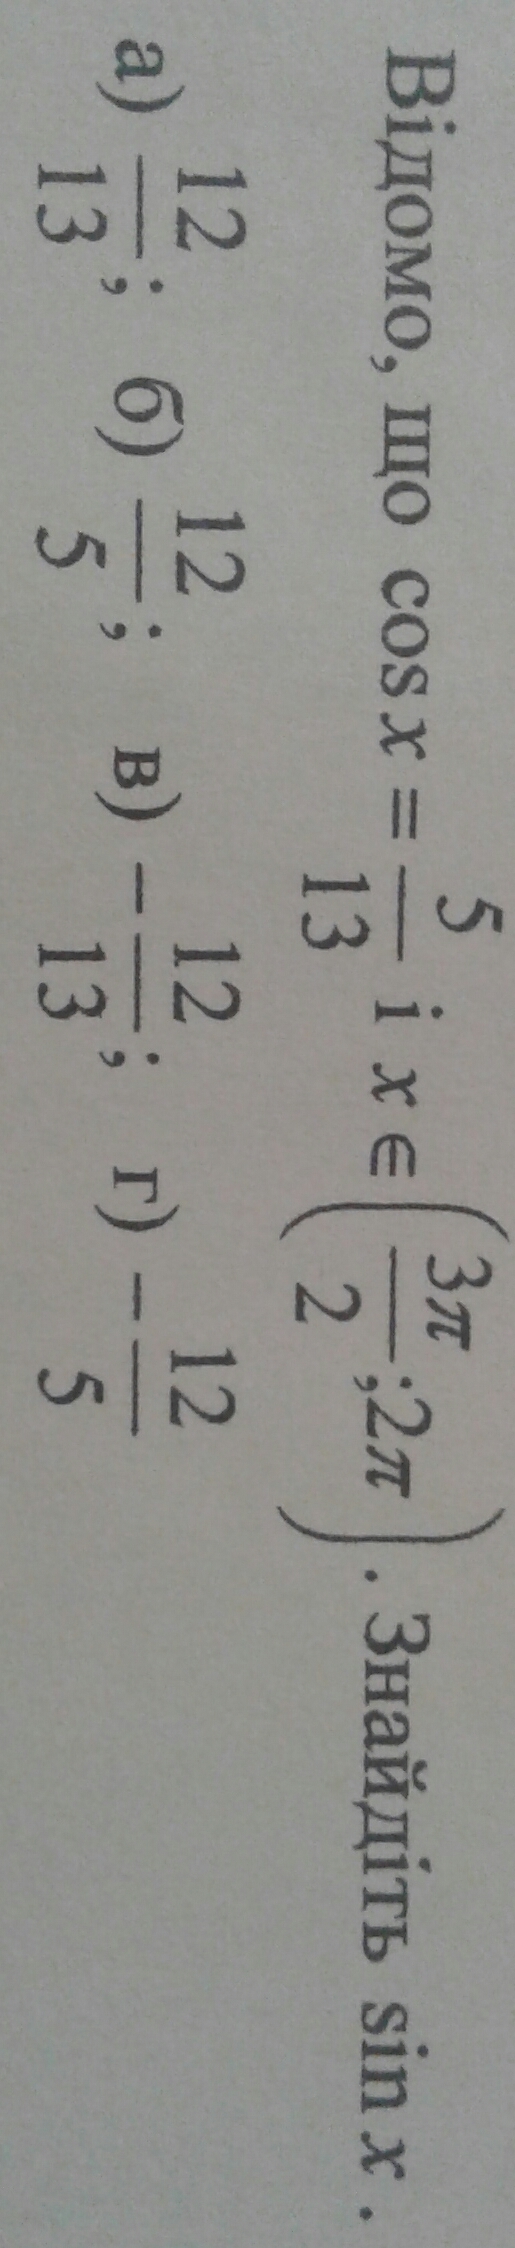 Відомо, що cos x = 5/13 і x ∈ (3π/2; 2π). Знайдіть sin x.
а) 12/13; б) 12/5; в) −12/13; г) −12/5